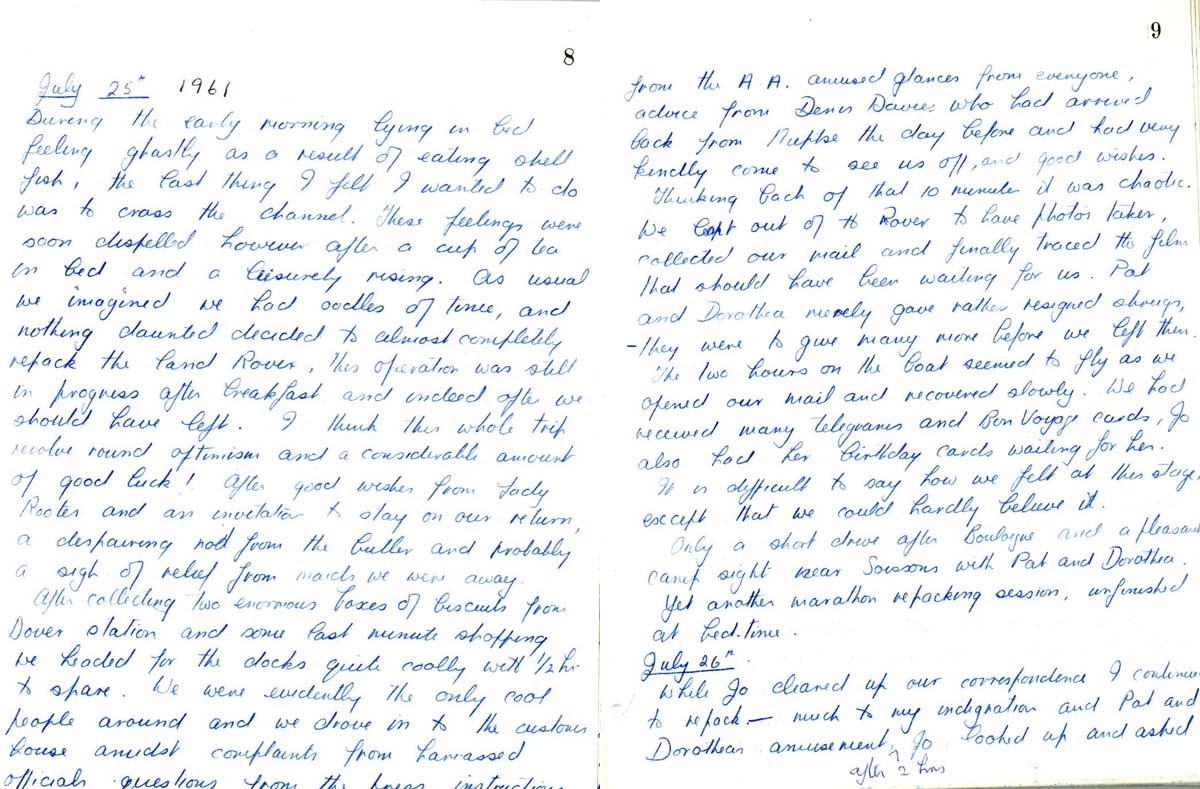 8
July 25th 1961
During the early morning lying in bed
feeling ghastly as a result of eating shell
fish, the last thing I felt I wanted to do
was to cross the channel. These feelings were
soon dispelled however after a cup of tea
in bed and a leisurely rising. As usual
we imagined we had oodles of time, and
nothing daunted decided to almost completely
repack the Land Rover, this operation was still
in progress after breakfast and indeed after we
should have left. I think this whole trip
revolve round optimism and a considerable amount
of good luck! After good wishes from Lady
Rootes and an invitation to stay on our return,
a despairing nod from the butler and probably
a sigh of relief from maids we were away.
After collecting two enormous boxes of biscuits from
Dover station and some last minute shopping
we headed for the docks quite coolly with 1/2 hr
to spare. We were evidently the only cool
people around and we drove in to the customs
house amidst complaints from harrassed
officials questions from the press instructions
9
from the A A. amused glances from everyone,
advice from Denis Davies who had arrived
back from Nuptse the day before and had very
kindly come to see us off, and good wishes.
Thinking back of that 10 minutes it was chaotic.
We leapt out of the Rover to have photos taken,
collected our mail and finally traced the film
that should have been waiting for us. Pat
and Dorothea merely gave rather resigned shrugs,
- they were to give many more before we left them.
The two hours on the boat seemed to fly as we
opened our mail and recovered slowly. We had
received many telegrams and Bon Voyage cards, Jo
also had her birthday cards waiting for her.
It is difficult to say how we felt at this stage,
except that we could hardly believe it.
Only a short drive after Boulogne and a pleasant
camp sight near Soissons with Pat and Dorothea.
Yet another marathon repacking session, unfinished
at bed-time.
July 26th.
While Jo cleared up our correspondence I continued
to repack — much to my indignation and Pat and
Dorotheas amusement, Jo looked up and asked
after 2 hrs